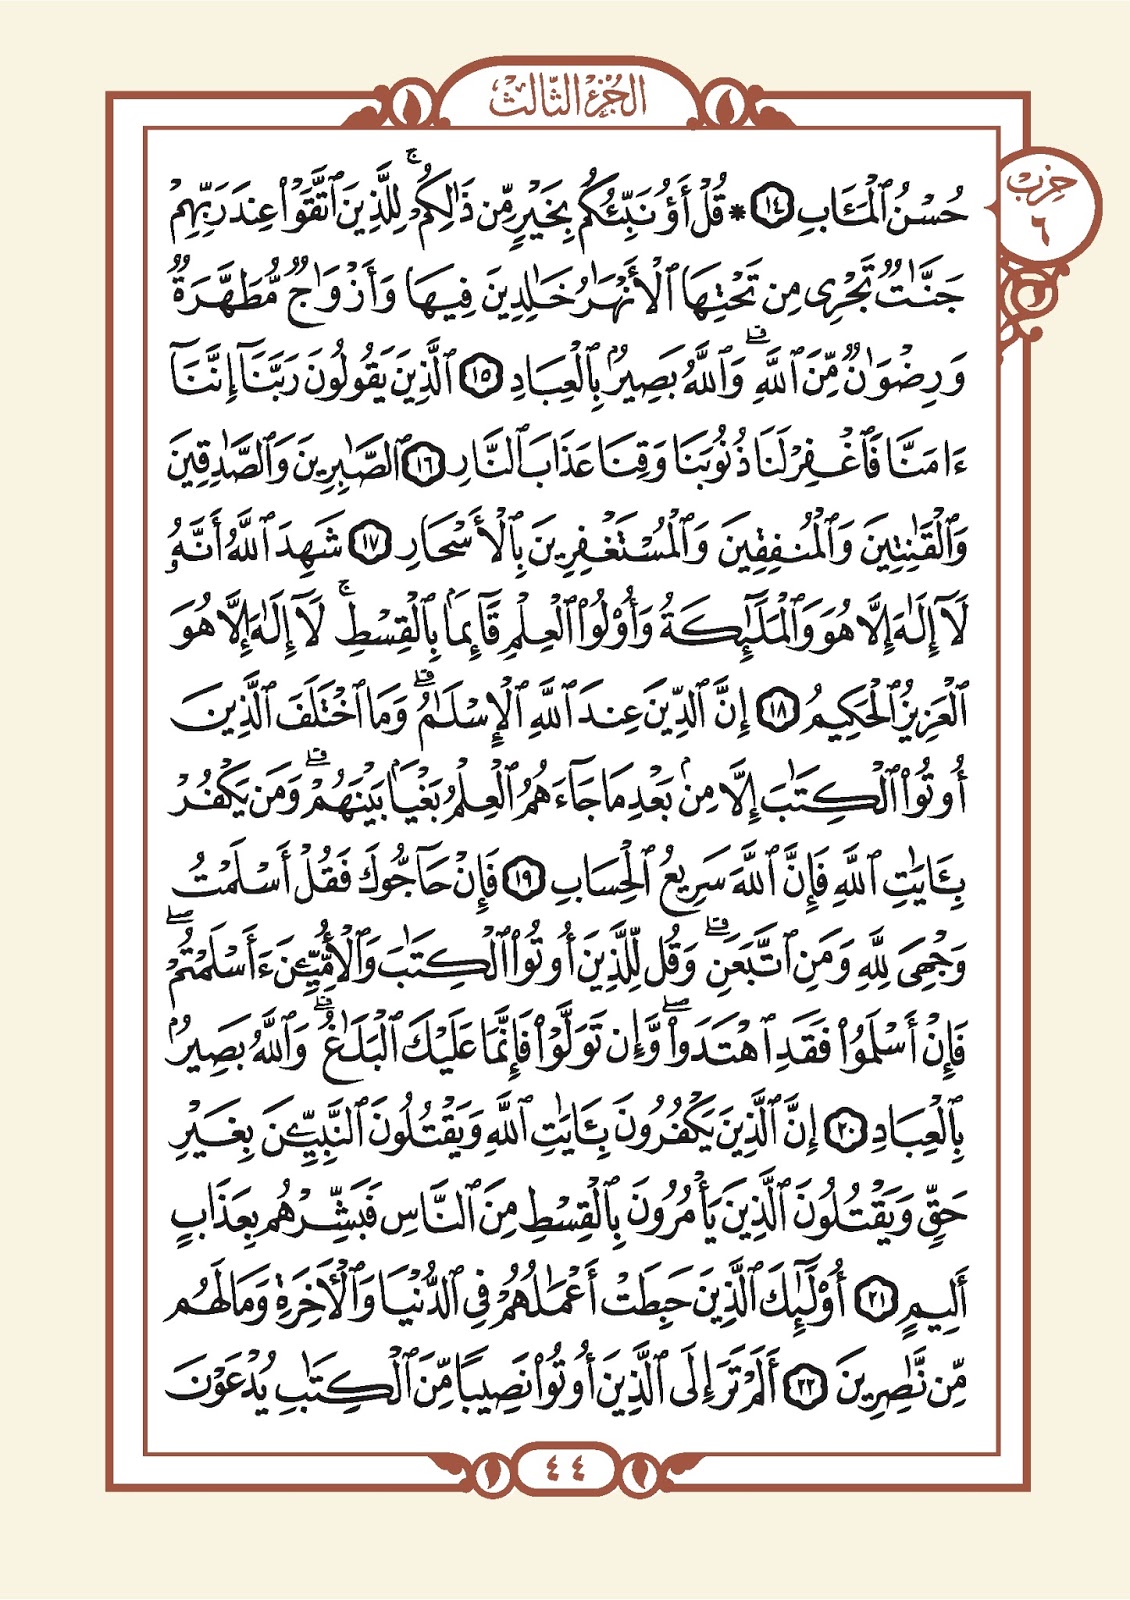 الجزء الثالث
حزب
٦
حُسْنُ ٱلْمَـَٔابِ ١٤ * قُلْ أَؤُنَبِّئُكُم بِخَيْرٍ مِّن ذَٰلِكُمْ ۚ لِلَّذِينَ ٱتَّقَوْا۟ عِندَ رَبِّهِمْ
جَنَّـٰتٌ تَجْرِى مِن تَحْتِهَا ٱلْأَنْهَـٰرُ خَـٰلِدِينَ فِيهَا وَأَزْوَٰجٌ مُّطَهَّرَةٌ
وَرِضْوَٰنٌ مِّنَ ٱللَّهِ ۗ وَٱللَّهُ بَصِيرٌۢ بِٱلْعِبَادِ ١٥ ٱلَّذِينَ يَقُولُونَ رَبَّنَآ إِنَّنَآ
ءَامَنَّا فَٱغْفِرْ لَنَا ذُنُوبَنَا وَقِنَا عَذَابَ ٱلنَّارِ ١٦ ٱلصَّـٰبِرِينَ وَٱلصَّـٰدِقِينَ
وَٱلْقَـٰنِتِينَ وَٱلْمُنفِقِينَ وَٱلْمُسْتَغْفِرِينَ بِٱلْأَسْحَارِ ١٧ شَهِدَ ٱللَّهُ أَنَّهُۥ
لَآ إِلَـٰهَ إِلَّا هُوَ وَٱلْمَلَـٰٓئِكَةُ وَأُو۟لُوا۟ ٱلْعِلْمِ قَآئِمًۢا بِٱلْقِسْطِ ۚ لَآ إِلَـٰهَ إِلَّا هُوَ
ٱلْعَزِيزُ ٱلْحَكِيمُ ١٨ إِنَّ ٱلدِّينَ عِندَ ٱللَّهِ ٱلْإِسْلَـٰمُ ۗ وَمَا ٱخْتَلَفَ ٱلَّذِينَ
أُوتُوا۟ ٱلْكِتَـٰبَ إِلَّا مِنۢ بَعْدِ مَا جَآءَهُمُ ٱلْعِلْمُ بَغْيًۢا بَيْنَهُمْ ۗ وَمَن يَكْفُرْ
بِـَٔايَـٰتِ ٱللَّهِ فَإِنَّ ٱللَّهَ سَرِيعُ ٱلْحِسَابِ ١٩ فَإِنْ حَآجُّوكَ فَقُلْ أَسْلَمْتُ
وَجْهِىَ لِلَّهِ وَمَنِ ٱتَّبَعَنِ ۗ وَقُل لِّلَّذِينَ أُوتُوا۟ ٱلْكِتَـٰبَ وَٱلْأُمِّيِّـۧنَ ءَأَسْلَمْتُمْ ۚ
فَإِنْ أَسْلَمُوا۟ فَقَدِ ٱهْتَدَوا۟ ۖ وَّإِن تَوَلَّوْا۟ فَإِنَّمَا عَلَيْكَ ٱلْبَلَـٰغُ ۗ وَٱللَّهُ بَصِيرٌۢ
بِٱلْعِبَادِ ٢٠ إِنَّ ٱلَّذِينَ يَكْفُرُونَ بِـَٔايَـٰتِ ٱللَّهِ وَيَقْتُلُونَ ٱلنَّبِيِّـۧنَ بِغَيْرِ
حَقٍّ وَيَقْتُلُونَ ٱلَّذِينَ يَأْمُرُونَ بِٱلْقِسْطِ مِنَ ٱلنَّاسِ فَبَشِّرْهُم بِعَذَابٍ
أَلِيمٍ ٢١ أُو۟لَـٰٓئِكَ ٱلَّذِينَ حَبِطَتْ أَعْمَـٰلُهُمْ فِى ٱلدُّنْيَا وَٱلْـَٔاخِرَةِ وَمَا لَهُم
مِّن نَّـٰصِرِينَ ٢٢ أَلَمْ تَرَ إِلَى ٱلَّذِينَ أُوتُوا۟ نَصِيبًا مِّنَ ٱلْكِتَـٰبِ يُدْعَوْنَ
٤٤